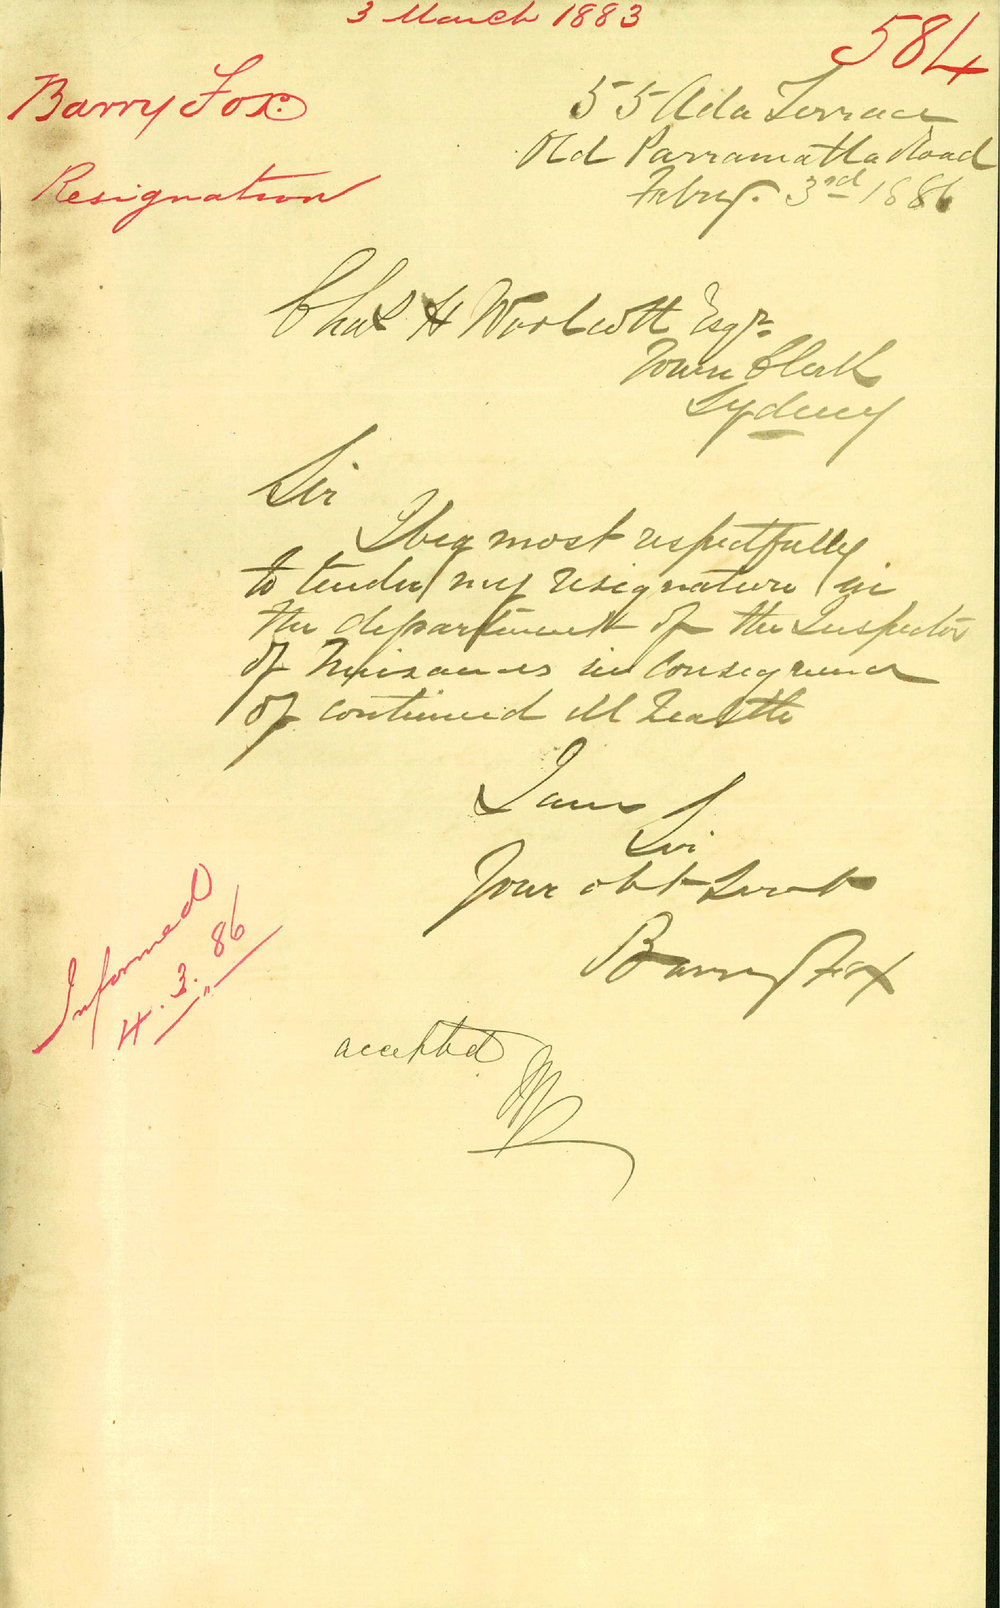 3 March 1883
584
Barry Fox
Resignation
55 Ada Terrace
Old Parramatta Road
Febuy. 3rd 1886
Chas H Woolcott Esqr.
Town Clerk
Sydney
Sir
I beg most respectfully
to tender my resignation in
the department of the Inspector
of Nuisances in consequence
of continued ill health
I am
Sir
Your obt Servt
Barry Fox
Informed
4.3.86
accepted